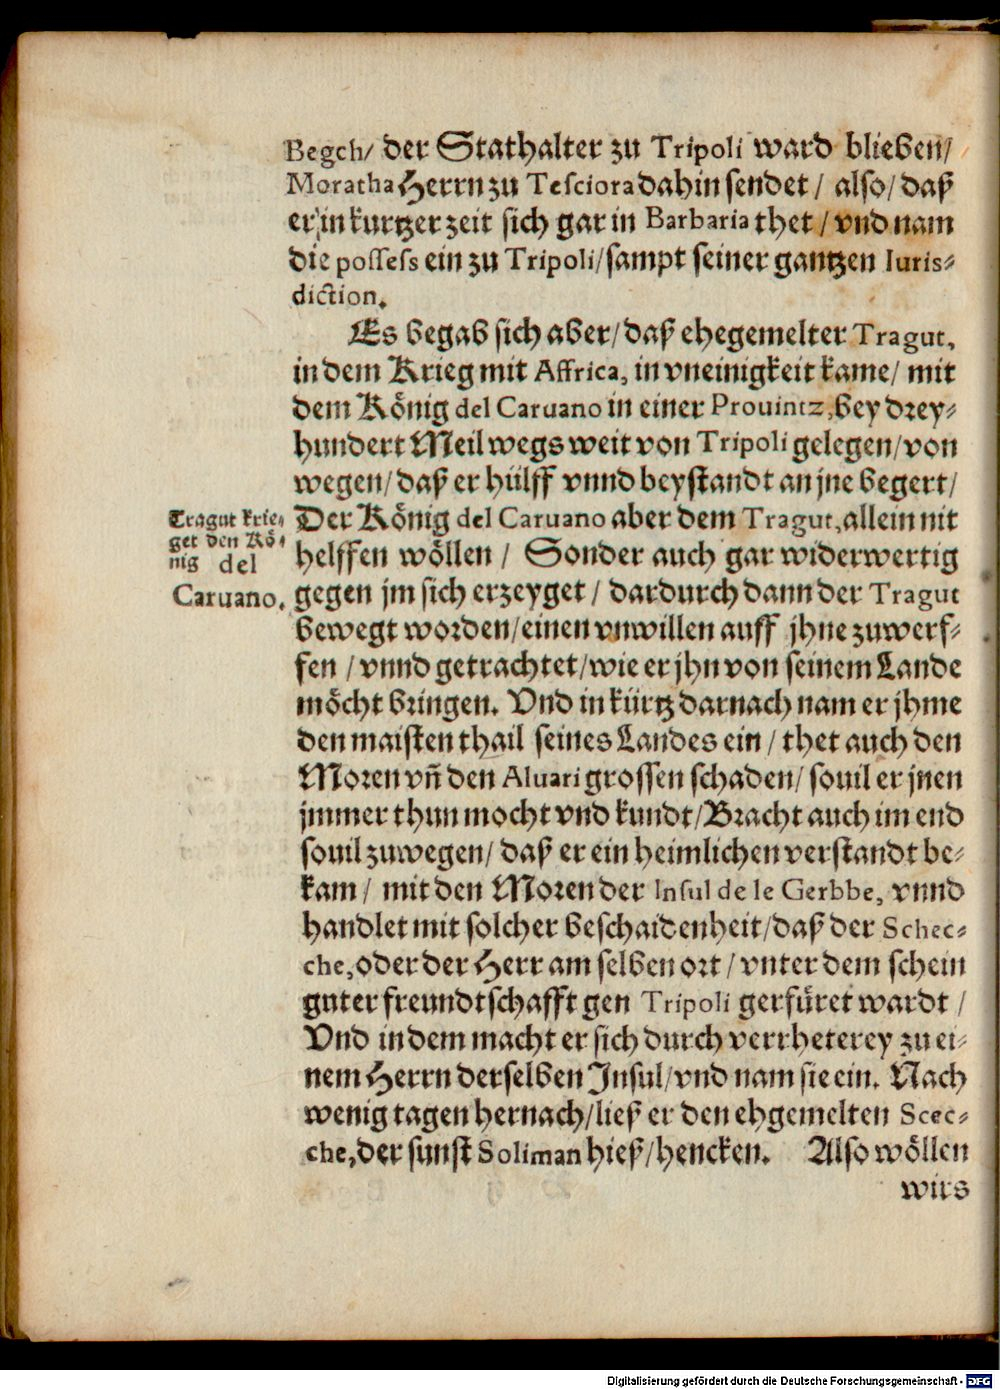 Begch/ der Stathalter zu Tripoli ward blieben/
Moratha Herrn zu Tesciora dahin sendet / also/ daß
er in kurtzer zeit sich gar in Barbaria thet / vnd nam
die possess ein zu Tripoli/ sampt seiner gantzen Iuris⸗
diction.
Es begab sich aber/ daß ehegemelter Tragut,
in dem Krieg mit Affrica, in vneinigkeit kame/ mit
dem König del Caruano in einer Prouintz, bey drey⸗
hundert Meil wegs weit von Tripoli gelegen/ von
wegen/ daß er hülff vnnd beystandt an jne begert/
Der König del Caruano aber dem Tragut, allein nit
helffen wöllen / Sonder auch gar widerwertig
gegen jm sich erzeyget / dardurch dann der Tragut
bewegt worden/ einen vnwillen auff jhne zuwerf⸗
fen / vnnd getrachtet/ wie er jhn von seinem Lande
möcht bringen. Vnd in kürtz darnach nam er jhme
den maisten thail seines Landes ein / thet auch den
Moren vñ den Aluari grossen schaden/ souil er jnen
jmmer thun mocht vnd kundt/ Bracht auch im end
souil zuwegen/ daß er ein heimlichen verstandt be⸗
kam / mit den Moren der Insul de le Gerbbe, vnnd
handlet mit solcher beschaidenheit/ daß der Schec⸗
che, oder der Herr am selben ort / vnter dem schein
guter freundtschafft gen Tripoli gerfüret wardt /
Vnd in dem macht er sich durch verrheterey zu ei⸗
nem Herrn derselben Insul/ vnd nam sie ein. Nach
wenig tagen hernach/ ließ er den ehgemelten Scec⸗
che, der sunst Soliman hieß/ hencken. Also wöllen
wirs
Tragut krie⸗
get den Kö⸗
nig del
Caruano.
Digitalisierung gefördert durch die Deutsche Forschungsgemeinschaft - DFG